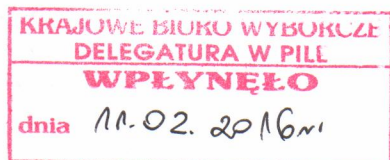 KRAJOWE BIURO WYBORCZE
DELEGATURA W PILE
WPŁYNĘŁO
dnia 11.02.2016 r.